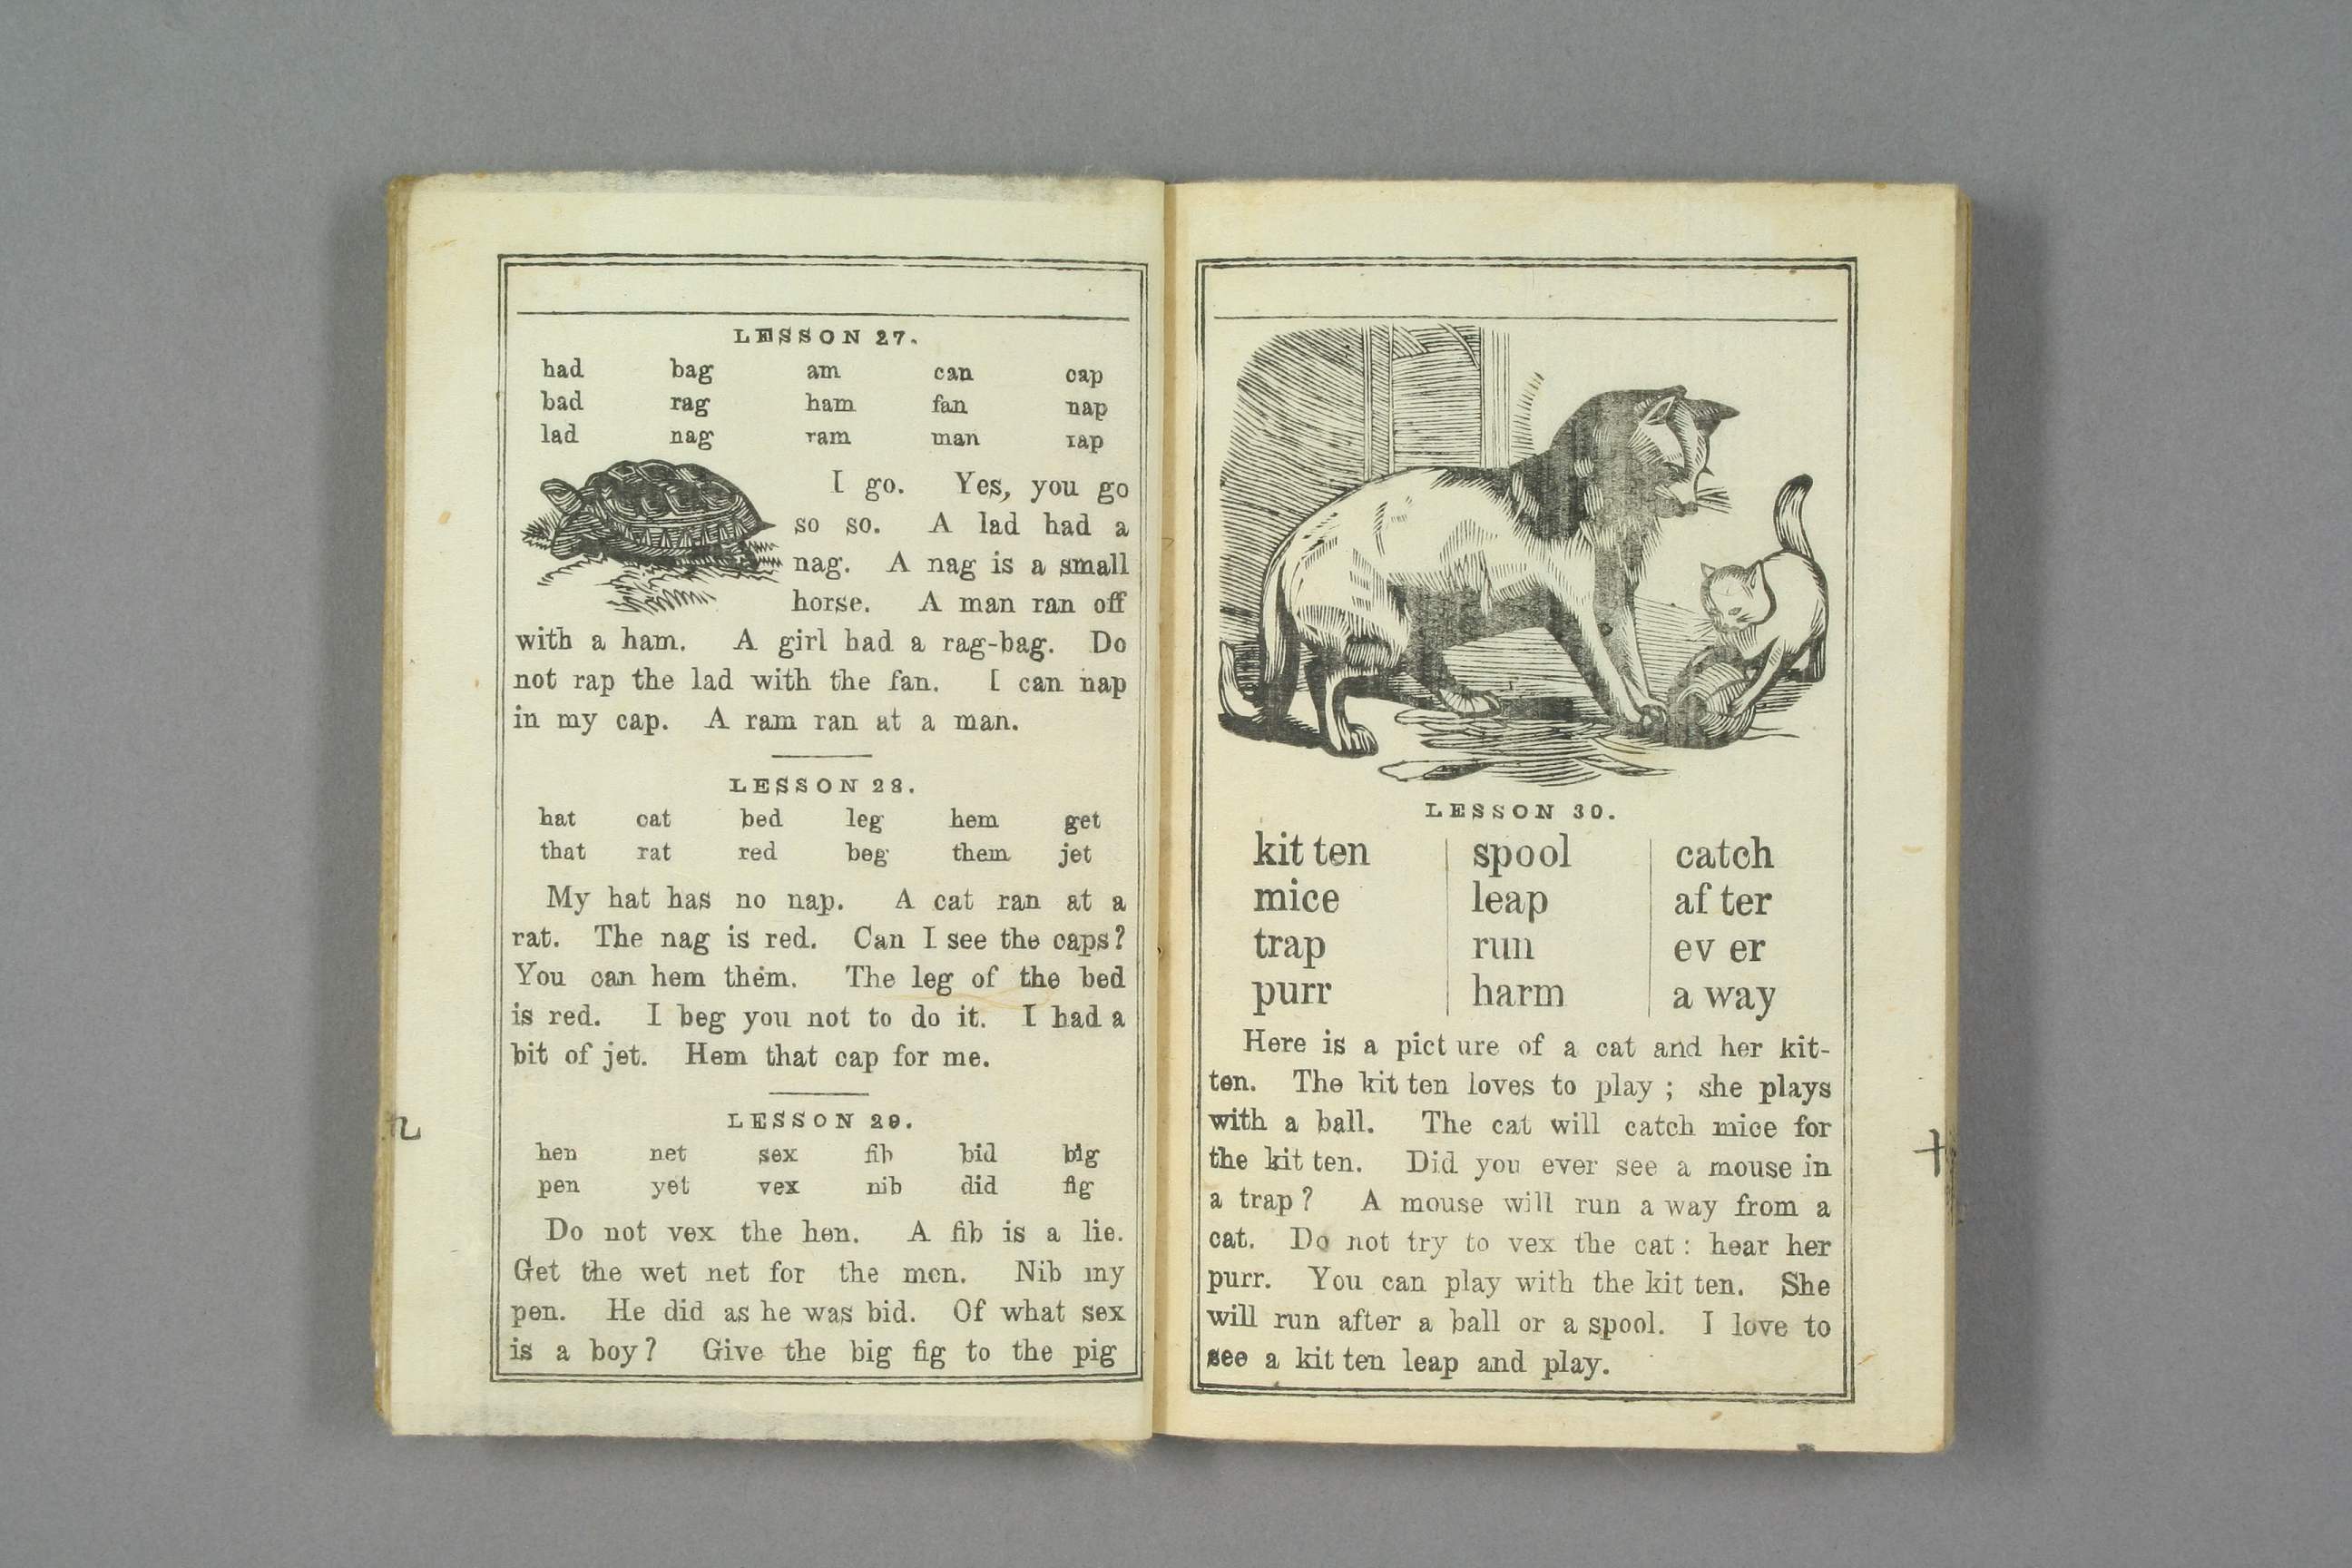 LESSON 27.
had bag am can cap
bad rag ham fan nap
lad nag ram man rap
I go. Yes, you go
so so. A lad had a
nag. A nag is a small
horse. A man ran off
with a ham. A girl had a rag-bag. Do
not rap the lad with the fan. I can nap
in my cap. A ram ran at a man.
LESSON 28.
hat cat bed leg hem get
that rat red beg them jet
My hat has no nap. A cat ran at a
rat. The nag is red. Can I see the caps?
You can hem them. The leg of the bed
is red. I beg you not to do it. I had a
bit of jet. Hem that cap for me.
LESSON 29.
hen net sex fib bid big
pen yet vex nib did fig
Do not vex the hen. A fib is a lie.
Get the wet net for the men. Nib my
pen. He did as he was bid. Of what sex
is a boy? Give the big fig to the pig
LESSON 30.
kit ten spool catch
mice leap af ter
trap run ev er
purr harm a way
Here is a pict ure of a cat and her kit-
ten. The kit ten loves to play; she plays
with a ball. The cat will catch mice for
the kit ten. Did you ever see a mouse in
a trap? A mouse will run a way from a
cat. Do not try to vex the cat: hear her
purr. You can play with the kit ten. She
will run after a ball or a spool. I love to
see a kit ten leap and play.